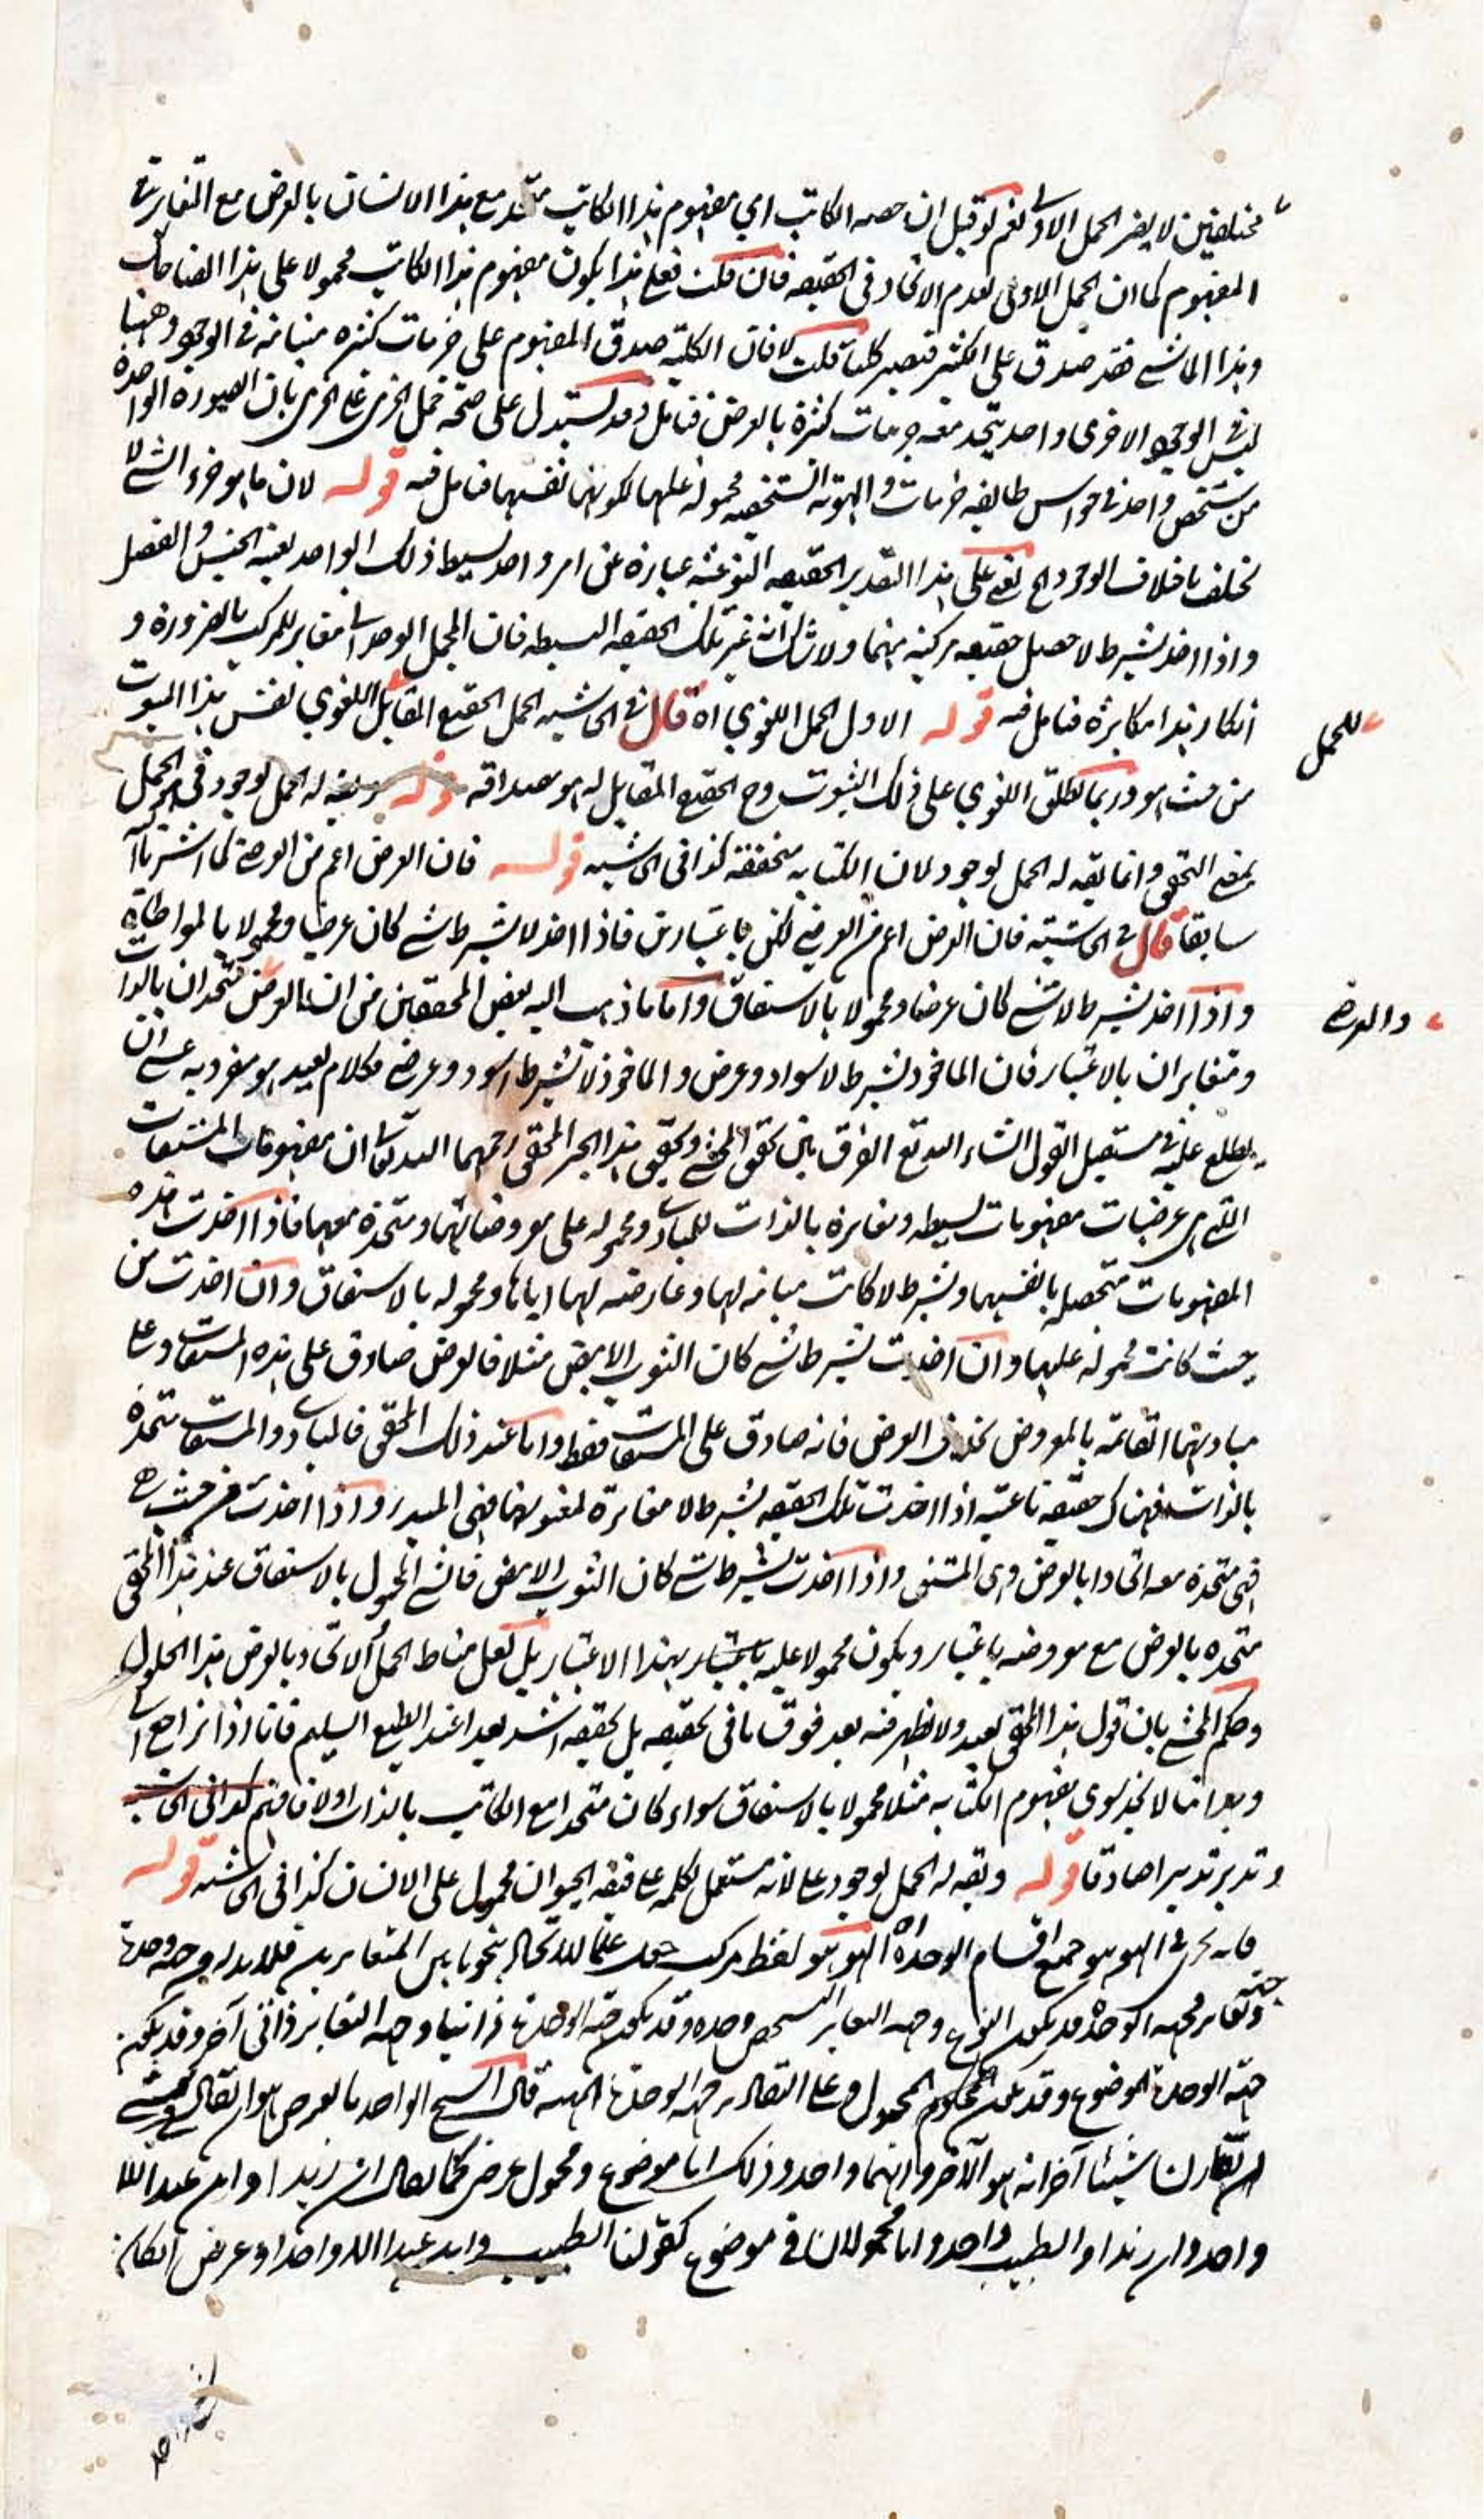 مختلفين لا يضر الحمل الاولى نعم لو قيل ان حصه الكاتب اي مفهوم هذا الكاتب متحد مع هذا الانسان بالعرض مع التغاير في
المفهوم كما ان الحمل الاولى لعدم الاتحاد في الحقيقه فان قلت فعلى هذا يكون مفهوم هذا الكاتب محمولا على هذا الضاحك
وهذا الماشي فقد صدق على الكثير فتصير كليا قلت لا فان الكلية صدق المفهوم على جزئيات كثيره متباينه في الوجود وههنا
ليس في الوجود الا فردى واحد يتحد معه جزئيات كثيرة بالعرض فتامل وقد يستدل على صحة حمل الجزئي على الجزئي بان الصورة الواحدة
من شخص واحد في حواس طايفه جزئيات والهوية الشخصيه محموله عليها لكونها نفسها فتامل فيه قوله لان ما هو جزء الشي لا
يختلف باختلاف الوجود الخ يعني على هذا التقدير الحقيقه النوعية عبارة عن امر واحد بسيط ذلك الواحد بعينه الجنس والفصل
واذا اخذ بشرط لا حصل حقيقه مركبة منهما ولا شك انه غير تلك الحقيقه البسيطه فان المجمل الوحداني مغاير للمركب بالضرورة و
انكار هذا مكابرة فتامل فيه قوله الاول الحمل اللغوي اه قال في الحاشيه الحمل الحقيقي المقابل اللغوي نفس هذا الثبوت
للحمل
من حيث هو وربما يطلق اللغوي على ذلك الثبوت وح الحقيقي المقابل له هو مصداقه قوله يقه له الحمل لوجود في الحمل
بمعنى التحقق وانما يقه له الحمل لوجود لان الكتابه متحققة كذا في الحاشيه قوله فان العرض اعم من العرضي كما اشرنا
سابقا قال في الحاشية فان العرض اعم من العرضي لكن باعتبارين فاذا اخذ لا بشرط شي كان عرضيا ومحمولا بالمواطاة
واذا اخذ بشرط لا شي كان عرضا ومحمولا بالاشتقاق واما ما ذهب اليه بعض المحققين من ان العرض متحدان بالذات
والعرضي
ومتغايران بالاعتبار فان الماخوذ بشرط لا سواد وعرض والماخوذ لا بشرط اسود وعرضي فكلام بعيد هو متفرد به عسى ان
يطلع عليه في مستقبل القول انشاء الله تع الفرق بين تحقيق المحشي وتحقيق هذا الحبر المحقق رحمهما الله تعالى ان مفهومات المشتقات
التي هي عرضيات مفهومات بسيطه ومغايرة بالذات للمبادى ومحموله على معروضاتها ومتحدة معها فاذا اخذت هذه
المفهومات متحصله بانفسها وبشرط لا كانت مباينه لها وعارضه لها اياها ومحموله بالاشتقاق وان اخذت من
حيث كانت محموله عليها وان اخذت بشرط شي كان الثوب الابيض مثلا فالعرض صادق على هذه المشتقات وعلى
مباديها القائمة بالمعروض بخلاف العرضي فانه صادق على المشتقات فقط واما عند ذلك المحقق فالمبادى والمشتقات متحدة
بالذات فهناك حقيقة ناعتية اذا اخذت تلك الحقيقه بشرط لا مغايرة لمعروضها فهي المبدا واذا اخذت من حيث هي
فهي متحدة معه اتحادا بالعرض وهي المشتق واذا اخذت بشرط شي كان الثوب الابيض فالشي المحمول بالاشتقاق عند هذا المحقق
متحده بالعرض مع معروضه باعتبار ويكون محمولا عليه بهذا الاعتبار بل لعل مناط الحمل الاتحاد بالعرض هذا الحلول
وحكم المحشي بان قول هذا المحقق بعيد ولا يظهر فيه بعد فوق ما في تحقيقه بل تحقيقه اشد بعدا عند الطبع السليم فانا اذا نراجع الى
وجداننا لا نجد سوى مفهوم الكتابه مثلا محمولا بالاشتقاق سواء كان متحدا مع الكاتب بالذات اولا فافهم كذا في الحاشيه
وتدبر تدبيرا صادقا قوله ويقه له الحمل لوجود على لانه مستعمل بكلمه على فيقه الحيوان محمول على الانسان كذا في الحاشيه قوله
فانه يجري في الهو هو جميع اقسام الوحدة اه الهو هو لفظ مركب جعل علما للاتحاد بنحو ما بين المتغايرين فلا بد له من جهه وحدة
وتغاير فجهه الوحدة قد يكون النوع وجهه التغاير الشخص وحده وقد يكون جهه الوحدة ذاتيا وجهه التغاير ذاتي آخر وقد يكون
جهة الوحدة الموضوع وقد يكون المحمول وعلى التقادير جهه الوحدة قال الشيخ الواحد بالعرض هو ان يقال في شي
ان يقارن شيئا آخر انه هو الآخر وانهما واحد وذلك اما موضوع ومحمول عرضي كما يقال ان زيدا وابن عبد الله
واحد وان زيدا والطبيب واحد واما محمولان في موضوع كقولنا الطبيب وابن عبد الله واحد او عرض ان كان